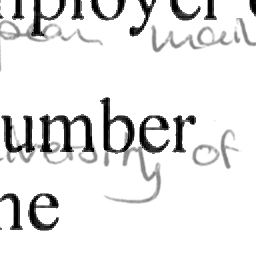 mployer
pean mail
umber
iversity of
ne